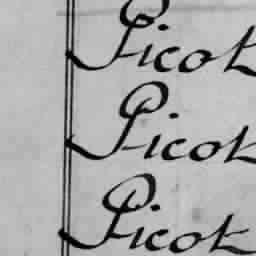 Picot
Picot
Picot